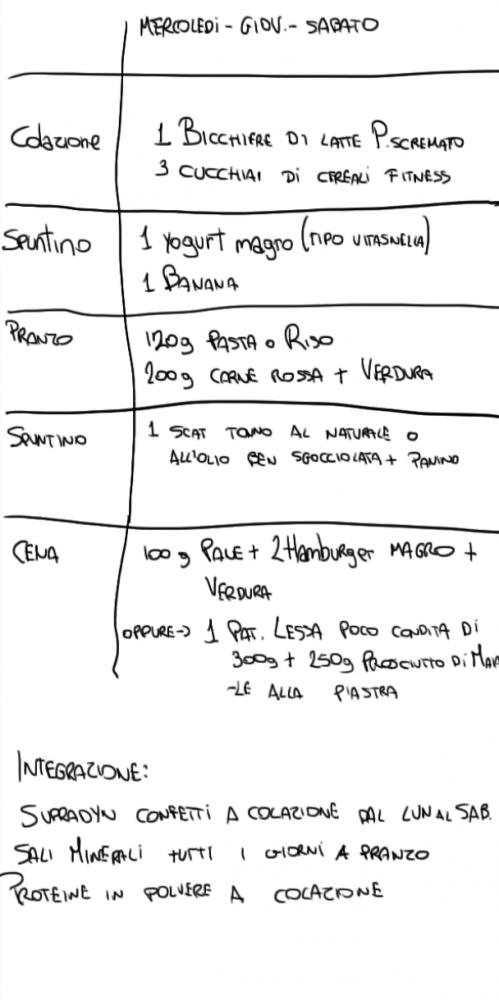 MERCOLEDì - GIOV. - SABATO
Colazione
1 BICCHIERE DI LATTE P. SCREMATO
3 CUCCHIAI DI CEREALI FITNESS
SPUNTINO
1 yogurt magro (TIPO VITASNELLA)
1 BANANA
PRANZO
120g PASTA O RISO
200g CARNE ROSSA + VERDURA
SPUNTINO
1 SCAT TONNO AL NATURALE O
ALL'OLIO BEN SGOCCIOLATA + PANINO
CENA
100g PALE + 2 Hamburger MAGRO +
VERDURA
OPPURE -> 1 PAT. LESSA POCO CONDITA DI
300g + 250g PROSCIUTTO DI MAIA
-LE ALLA PIASTRA
INTEGRAZIONE:
SUPRADYN CONFETTI A COLAZIONE DAL LUN AL SAB.
SALI MINERALI TUTTI I GIORNI A PRANZO
PROTEINE IN POLVERE A COLAZIONE